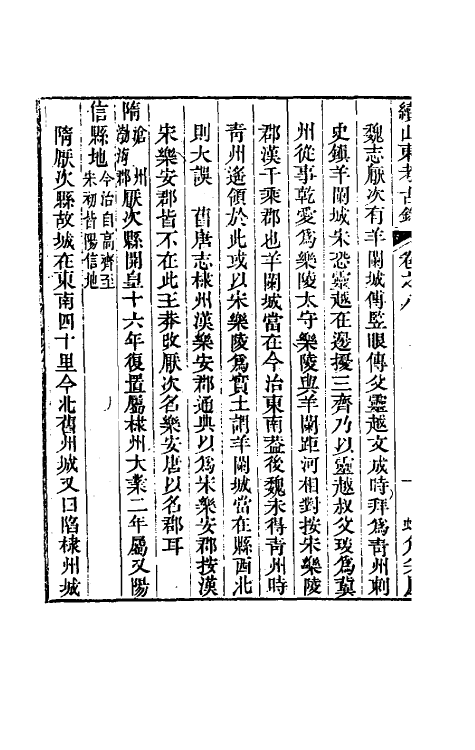 續山東考古錄 卷之八
魏志厭次有羊闌城傅豎眼傳父靈越文成時拜爲青州刺
史鎮羊闌城宋恐靈越在邊擾三齊乃以靈越叔父琰爲冀
州從事乾愛爲樂陵太守樂陵與羊闌距河相對按宋樂陵
郡漢千乘郡也羊闌城當在今治東南葢後魏未得青州時
青州遙領於此或以宋樂陵爲實土謂羊闌城當在縣西北
則大誤 舊唐志棣州漢樂安郡通典以爲宋樂安郡按漢
宋樂安郡皆不在此王莽改厭次名樂安唐以名郡耳
隋滄州渤海郡厭次縣開皇十六年復置屬棣州大業二年屬又陽
信縣地今治自高齊至宋初皆陽信地
隋厭次縣故城在東南四十里今北舊州城又曰陷棣州城